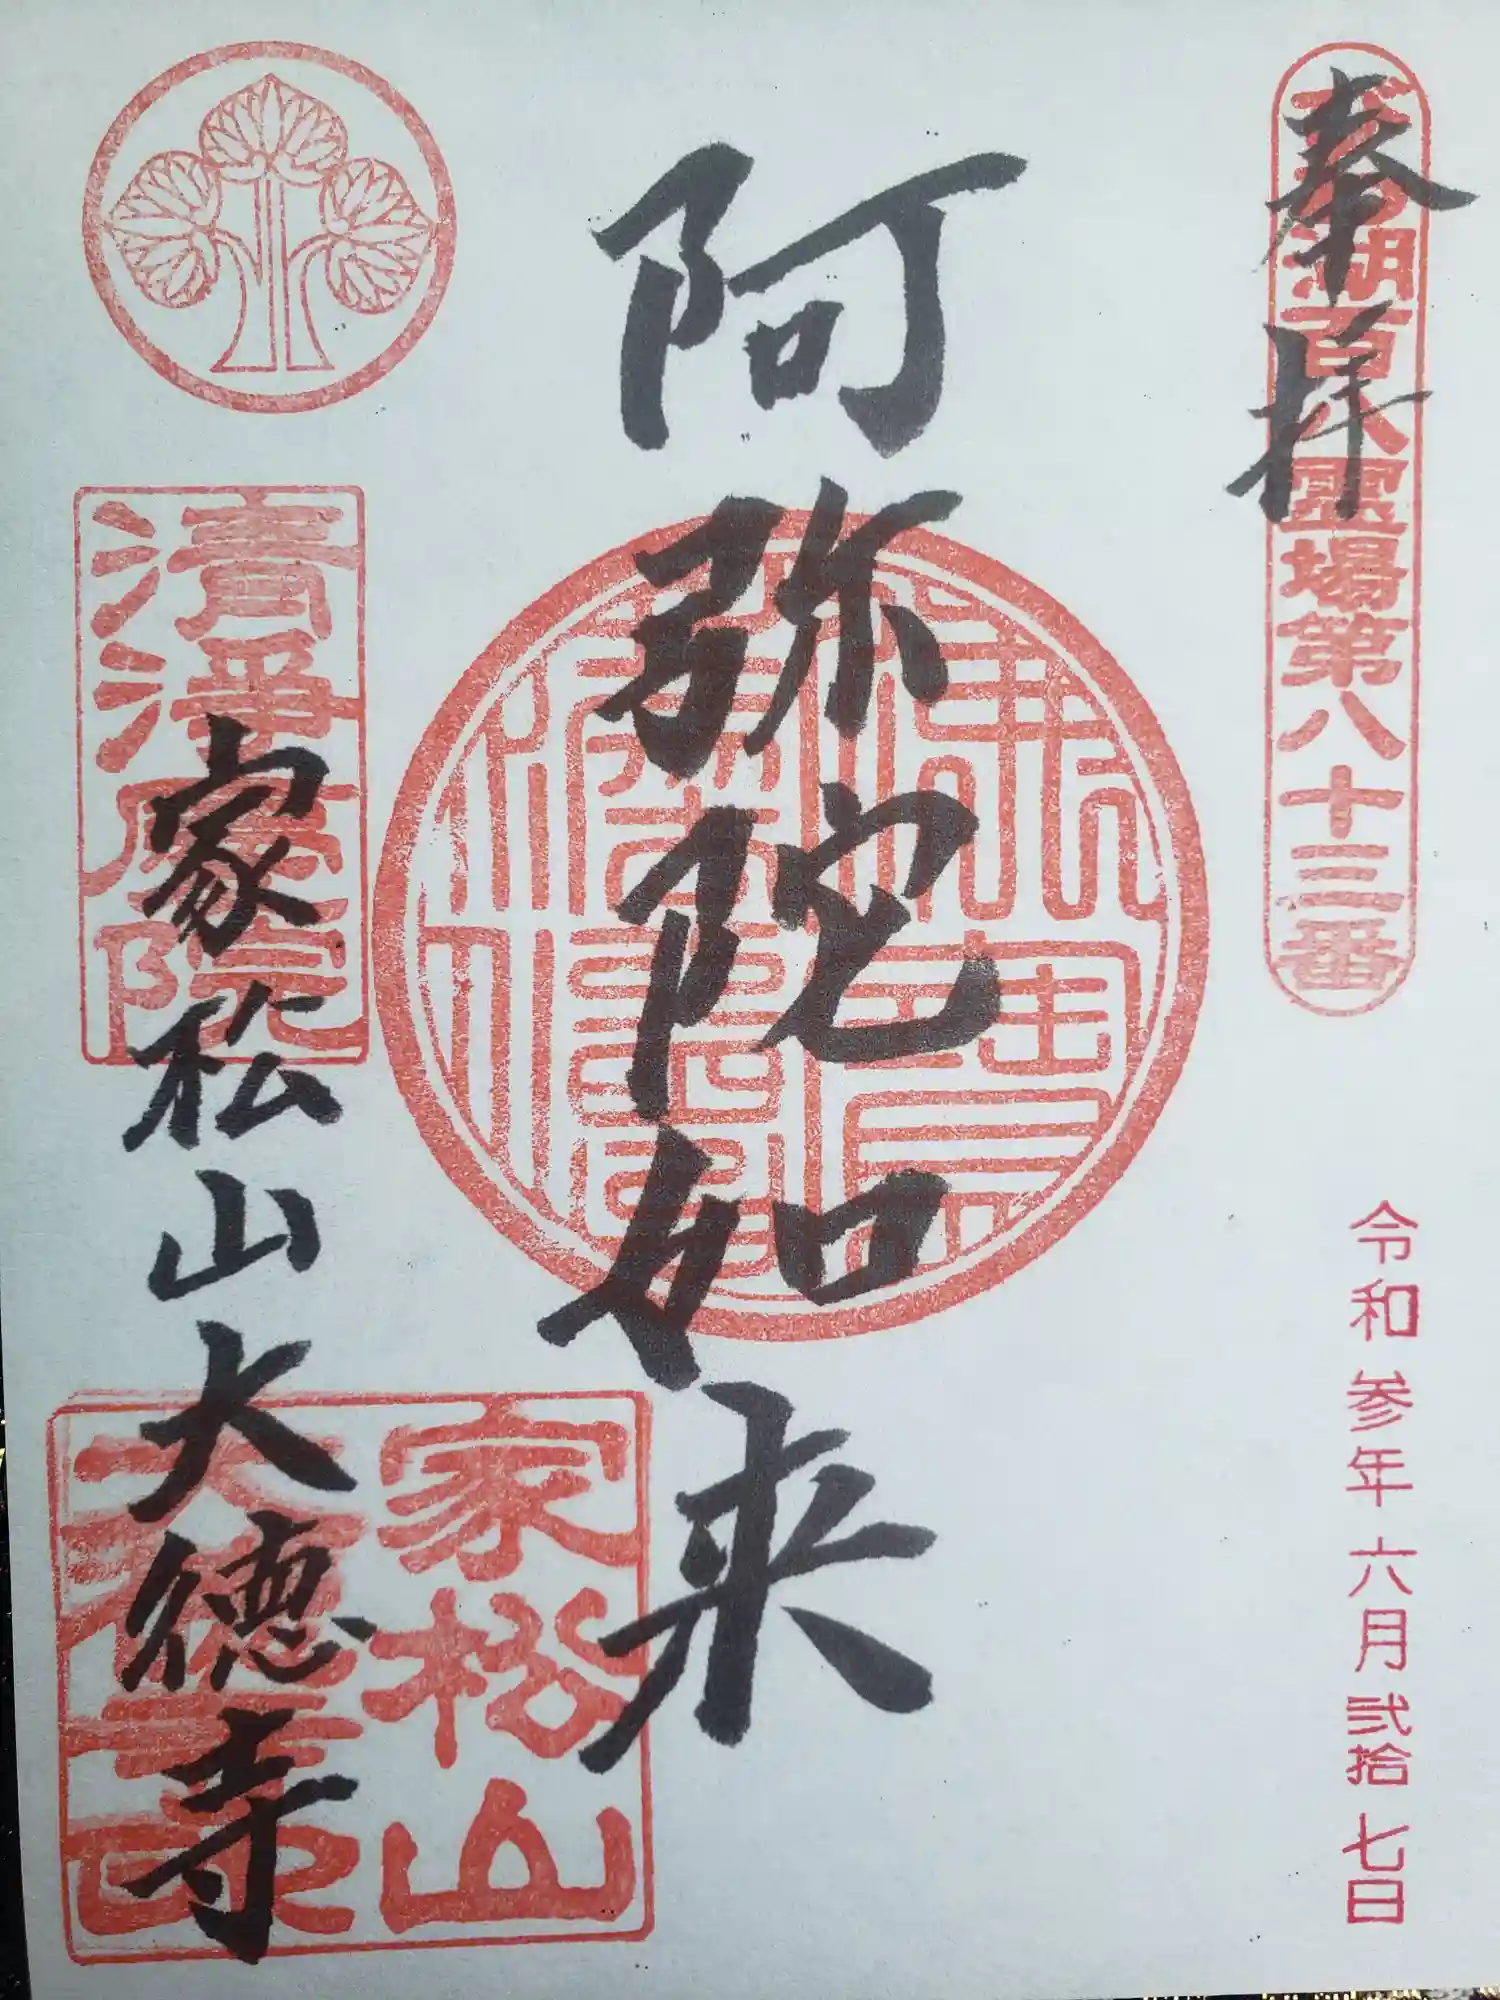 奉拝
湖百八霊場第八十三番
令和参年六月弐拾七日
阿弥陀如来
清浄歴院
家松山大徳寺
家松山
大徳寺印